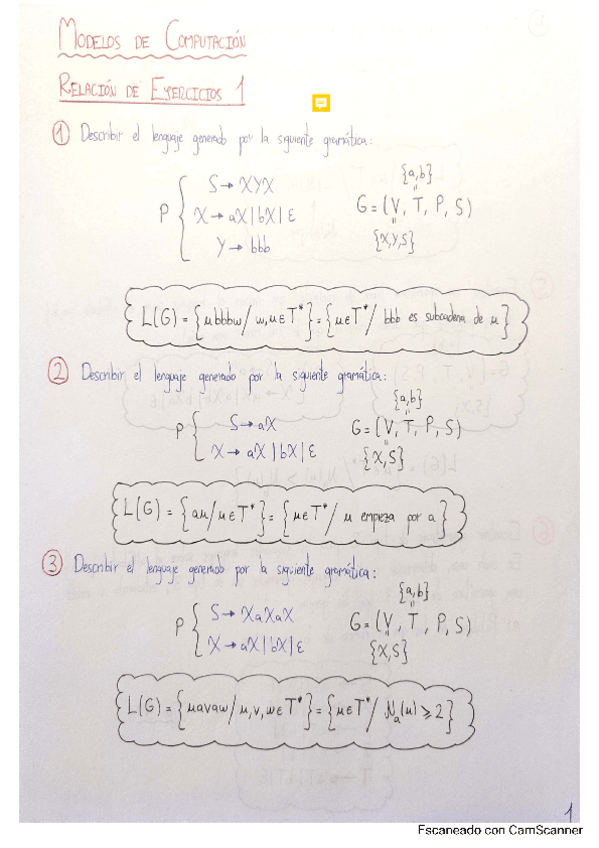 MODELOS DE COMPUTACIÓN
RELACIÓN DE EJERCICIOS 1
① Describir el lenguaje generado por la siguiente gramática:
P { S → XYX
X → aX | bX | ε
Y → bbb
{a,b}
G = (V, T, P, S)
{X,Y,S}
L(G) = {ubbbw / w,u ∈ T*} = {u ∈ T* / bbb es subcadena de u}
② Describir el lenguaje generado por la siguiente gramática:
P { S → aX
X → aX | bX | ε
{a,b}
G = (V, T, P, S)
{X,S}
L(G) = {au / u ∈ T*} = {u ∈ T* / u empieza por a}
③ Describir el lenguaje generado por la siguiente gramática:
P { S → XaXaX
X → aX | bX | ε
{a,b}
G = (V, T, P, S)
{X,S}
L(G) = {uavaw / u,v,w ∈ T*} = {u ∈ T* / Nₐ(u) ⩾ 2}
1
Escaneado con CamScanner